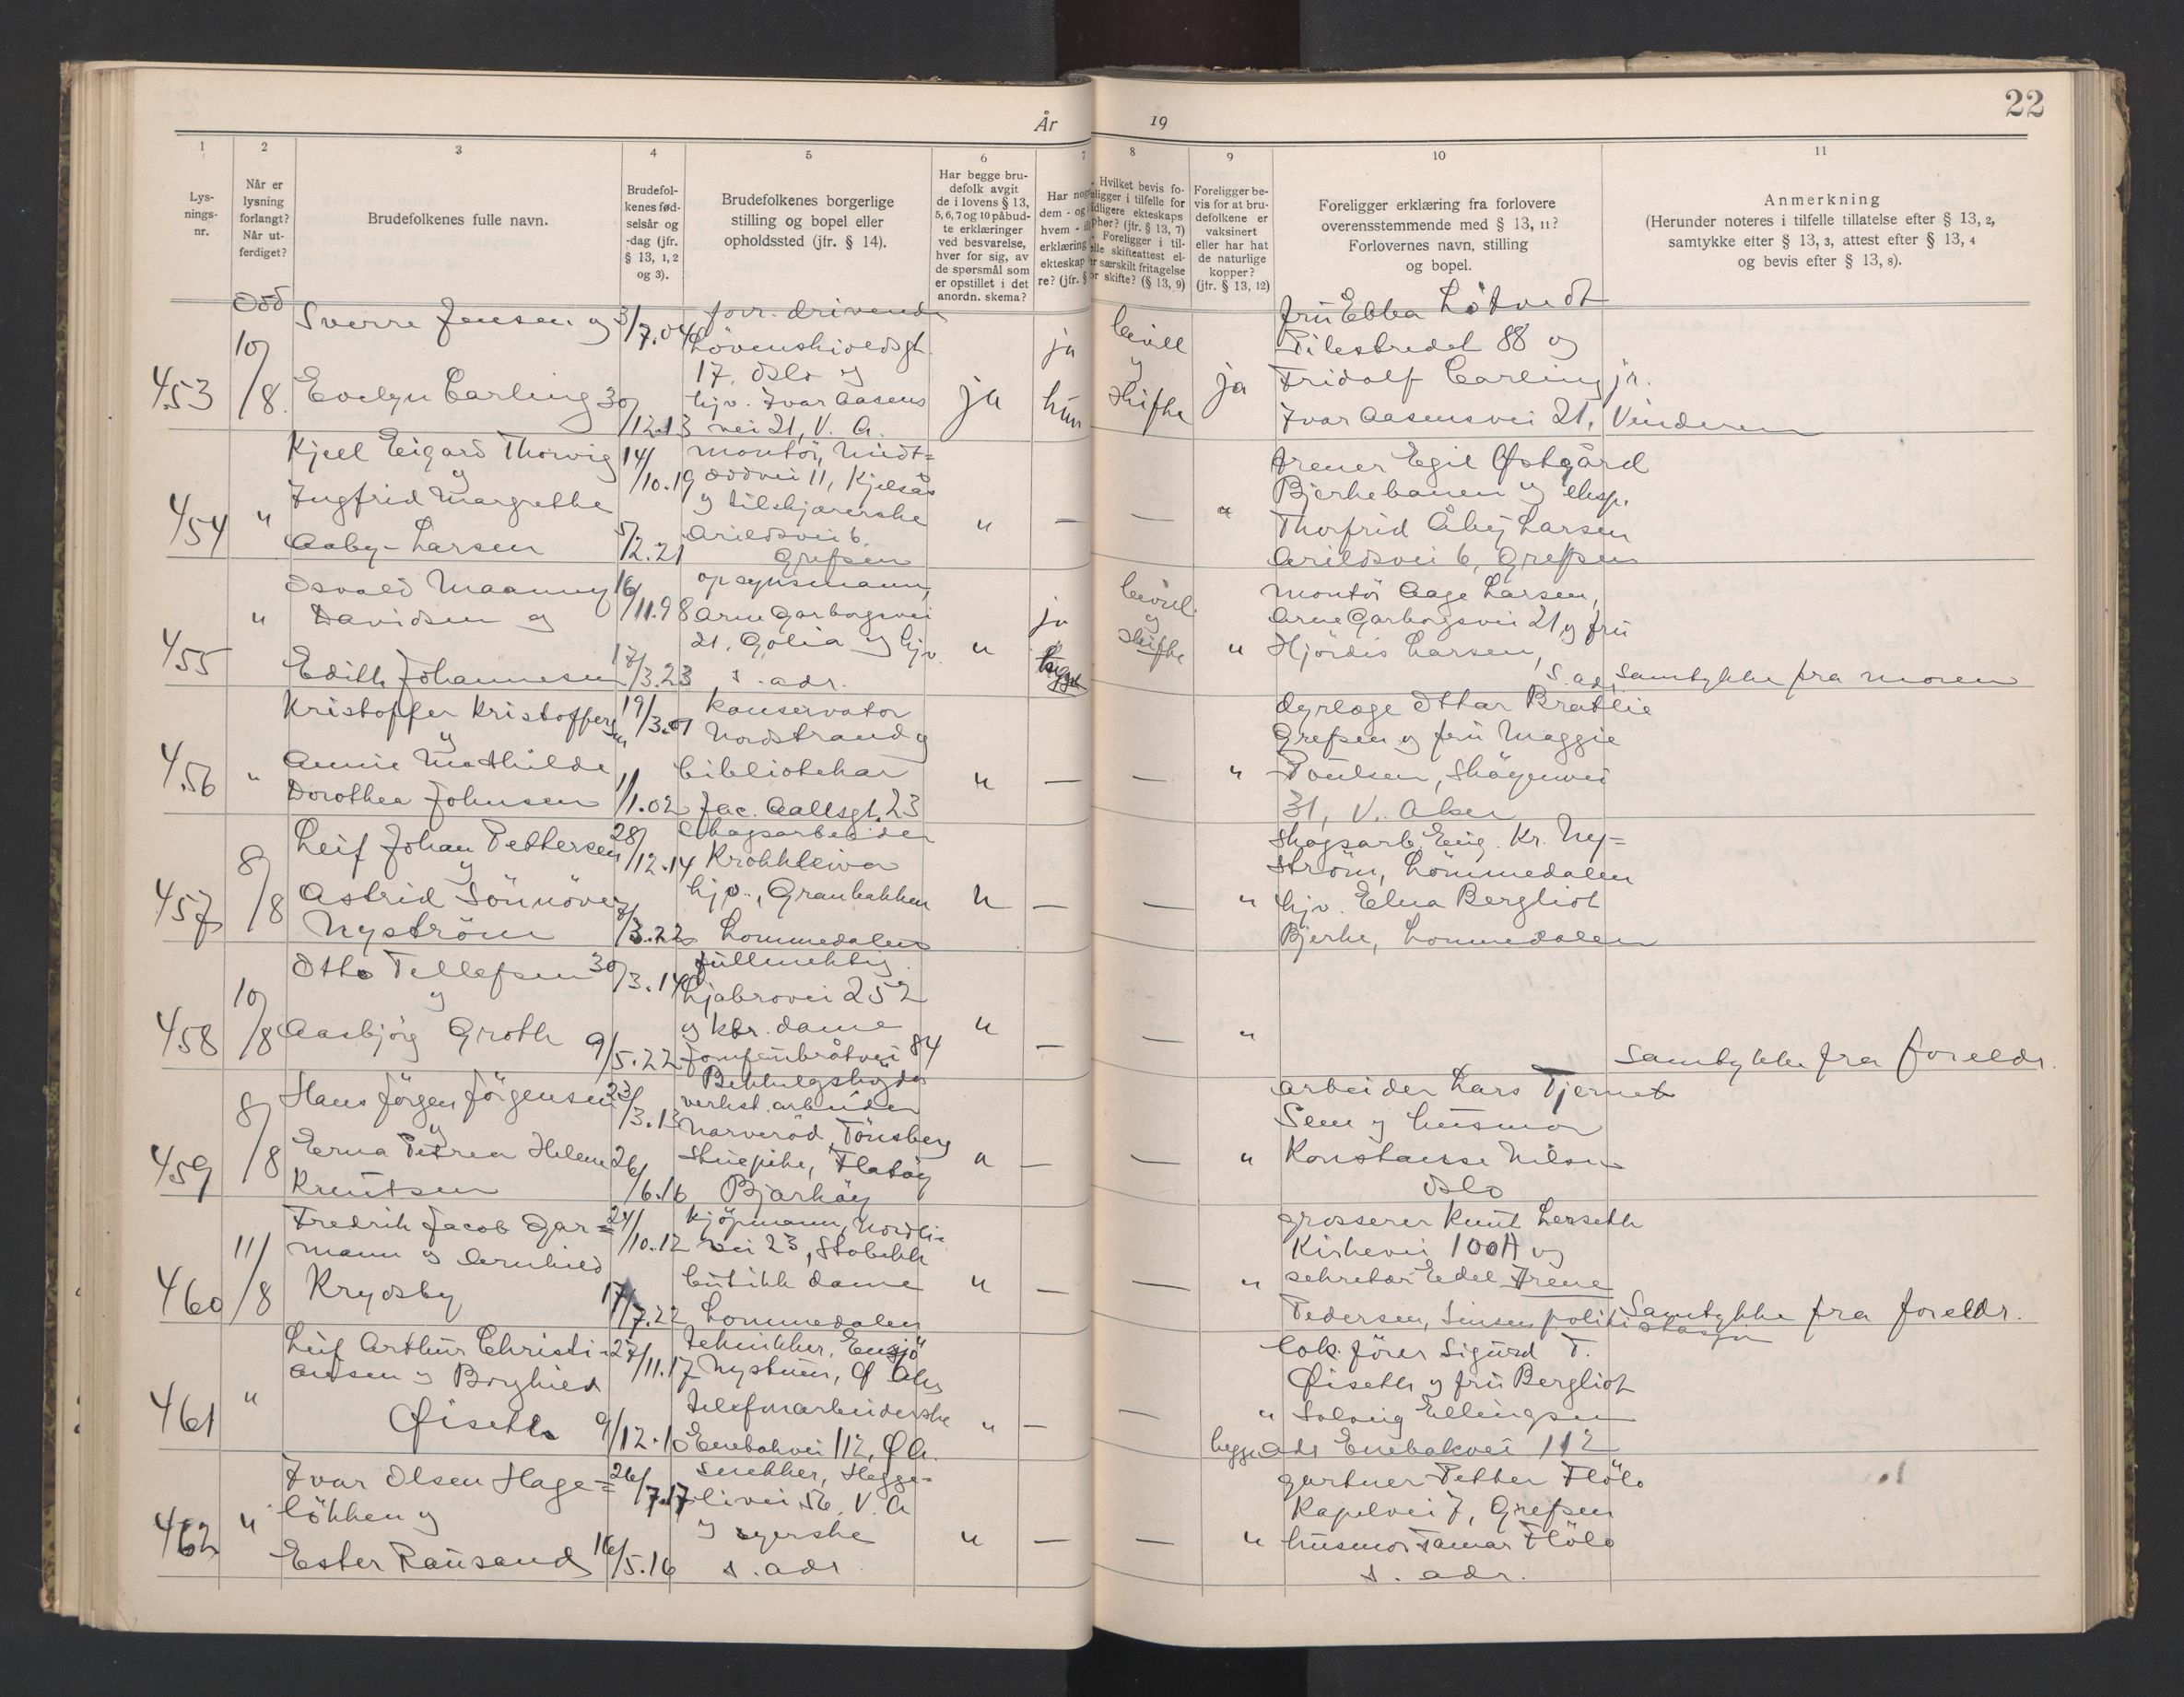 22
År
19
1
2
3
4
5
6
7
8
9
10
11
Lys-
nings-
nr.
Når er
lysning
forlangt?
Når ut-
ferdiget?
Brudefolkenes fulle navn.
Brudefol-
kenes fød-
selsår og
-dag (jfr.
§ 13, 1, 2
og 3).
Brudefolkenes borgerlige
stilling og bopel eller
opholdssted (jfr. § 14).
Har begge bru-
defolk avgit
de i lovens § 13,
5, 6, 7 og 10 påbud-
te erklæringer
ved besvarelse,
hver for sig, av
de spørsmål som
er opstillet i det
anordn. skema?
Har nog
dem - og
hvem -
erklæring
ekteskap
re? (jfr. §
Hvilket bevis fo-
religger i tilfelle for
tidligere ekteskaps
ophør? (jfr. § 13, 7)
Foreligger i til-
felle skifteattest el-
ler særskilt fritagelse
for skifte? (§ 13, 9)
Foreligger be-
vis for at bru-
defolkene er
vaksinert
eller har hat
de naturlige
kopper?
(jfr. § 13, 12)
Foreligger erklæring fra forlovere
overensstemmende med § 13, 11?
Forlovernes navn, stilling
og bopel.
Anmerkning
(Herunder noteres i tilfelle tillatelse efter § 13, 2,
samtykke efter § 13, 3, attest efter § 13, 4
og bevis efter § 13, 8).
453
10/8
Sverre Jensen og
Evelyn Carling
3/7.04
30/12.13
forr. drivende
Løvenskioldsgt.
17, Oslo og
hjv. Ivar Aasens
vei 21, V. A.
ja
ja
hun
bevill
og
skifte
ja
fru Ebba Løtvedt
Pilestredet 88 og
Fridolf Carling jr.
Ivar Aasensvei 21, Vinderen
454
"
Kjell Eigard Thorvig
og
Ingfrid Margrethe
Aaby-Larsen
14/10.19
5/2.21
montør, Midt=
oddvei 11, Kjelsås
og tilskjærerske
Arildsvei 6.
Grefsen
"
—
—
"
trener Egil Østgård
Bjerkebanen og eksp.
Thorfrid Åby Larsen
Arildsvei 6, Grefsen
455
"
Osvald Maanny
Davidsen og
Edith Johannesen
16/11.98
17/3.23
opsynsmann,
Arne Garborgsvei
21, Golia og hjv.
s. adr.
"
ja
begge
bevill.
og
skifte
"
montør Aage Larsen,
Arne Garborgsvei 21 og fru
Hjørdis Larsen,
s. ad.
Samtykke fra moren
456
"
Kristoffer Kristoffersen
og
Annie Mathilde
Dorothea Johnsen
19/3.01
1/1.02
konservator
Nordstrand og
bibliotekar
Jac. Aallsgt. 23
"
—
—
"
dyrlæge Ottar Bratlie
Grefsen og fru Maggie
Poulsen, Skøyenvei
31, V. Aker
457
8/8
Leif Johan Pettersen
og
Astrid Sönnöve
Nyström
28/12.14
7/3.22
skogsarbeider
Krokkleiva
hjv., Granbakken
Lommedalen
"
—
—
"
skogsarb. Eug. Kr. Ny=
ström, Lommedalen
hjv. Elna Bergliot
Bjerke, Lommedalen
458
10/8
Otto Tellefsen
og
Aasbjörg Groth
30/3.14
9/5.22
fullmektig
Ljabrovei 252
og ktr. dame
Jomfrubråtvei 84
Bekkelagshøgda
"
—
—
"
Samtykke fra foreldr.
459
8/8
Hans Jörgen Jörgensen
og
Erna Petrea Helene
Knutsen
23/3.13
26/6.16
verkst. arbeider
Narverød, Tönsberg
stuepike, Flatøy
Bjarkøy
"
—
—
"
arbeider Lars Tjernet
Sem og husmor
Konstanse Nilsen
Oslo
460
11/8
Fredrik Jacob Gar=
mann og Arnhild
Krydsby
24/10.12
17/7.22
Kjøpmann, Nordli-
vei 23, Stabekk
butikk dame
Lommedalen
"
—
—
"
grosserer Knut Lerseth
Kirkevei 100A og
sekretær Edel Irene
Pedersen, Sinsen politi
stasjon
Samtykke fra foreldr.
461
"
Leif Arthur Christi-
ansen og Borghild
Øiseth
27/11.17
9/12.10
tekniker, Ensjø
Nystuen, Ø Aker
telefonarbeiderske
Enebakvei 112, Ø A.
"
—
—
"
lok. fører Sigurd T.
Øiseth og fru Bergliot
Solveig Ellingsen
begge adr Enebakvei 112
462
"
Ivar Olsen Hage=
løkken og
Ester Rausand
26/7.17
16/5.16
snekker, Hegge-
livei 56, V. A
og syerske
s. adr.
"
—
—
"
gartner Petter Flølo
Kapelvei 7, Grefsen
husmor Tamar Flølo
s. adr.